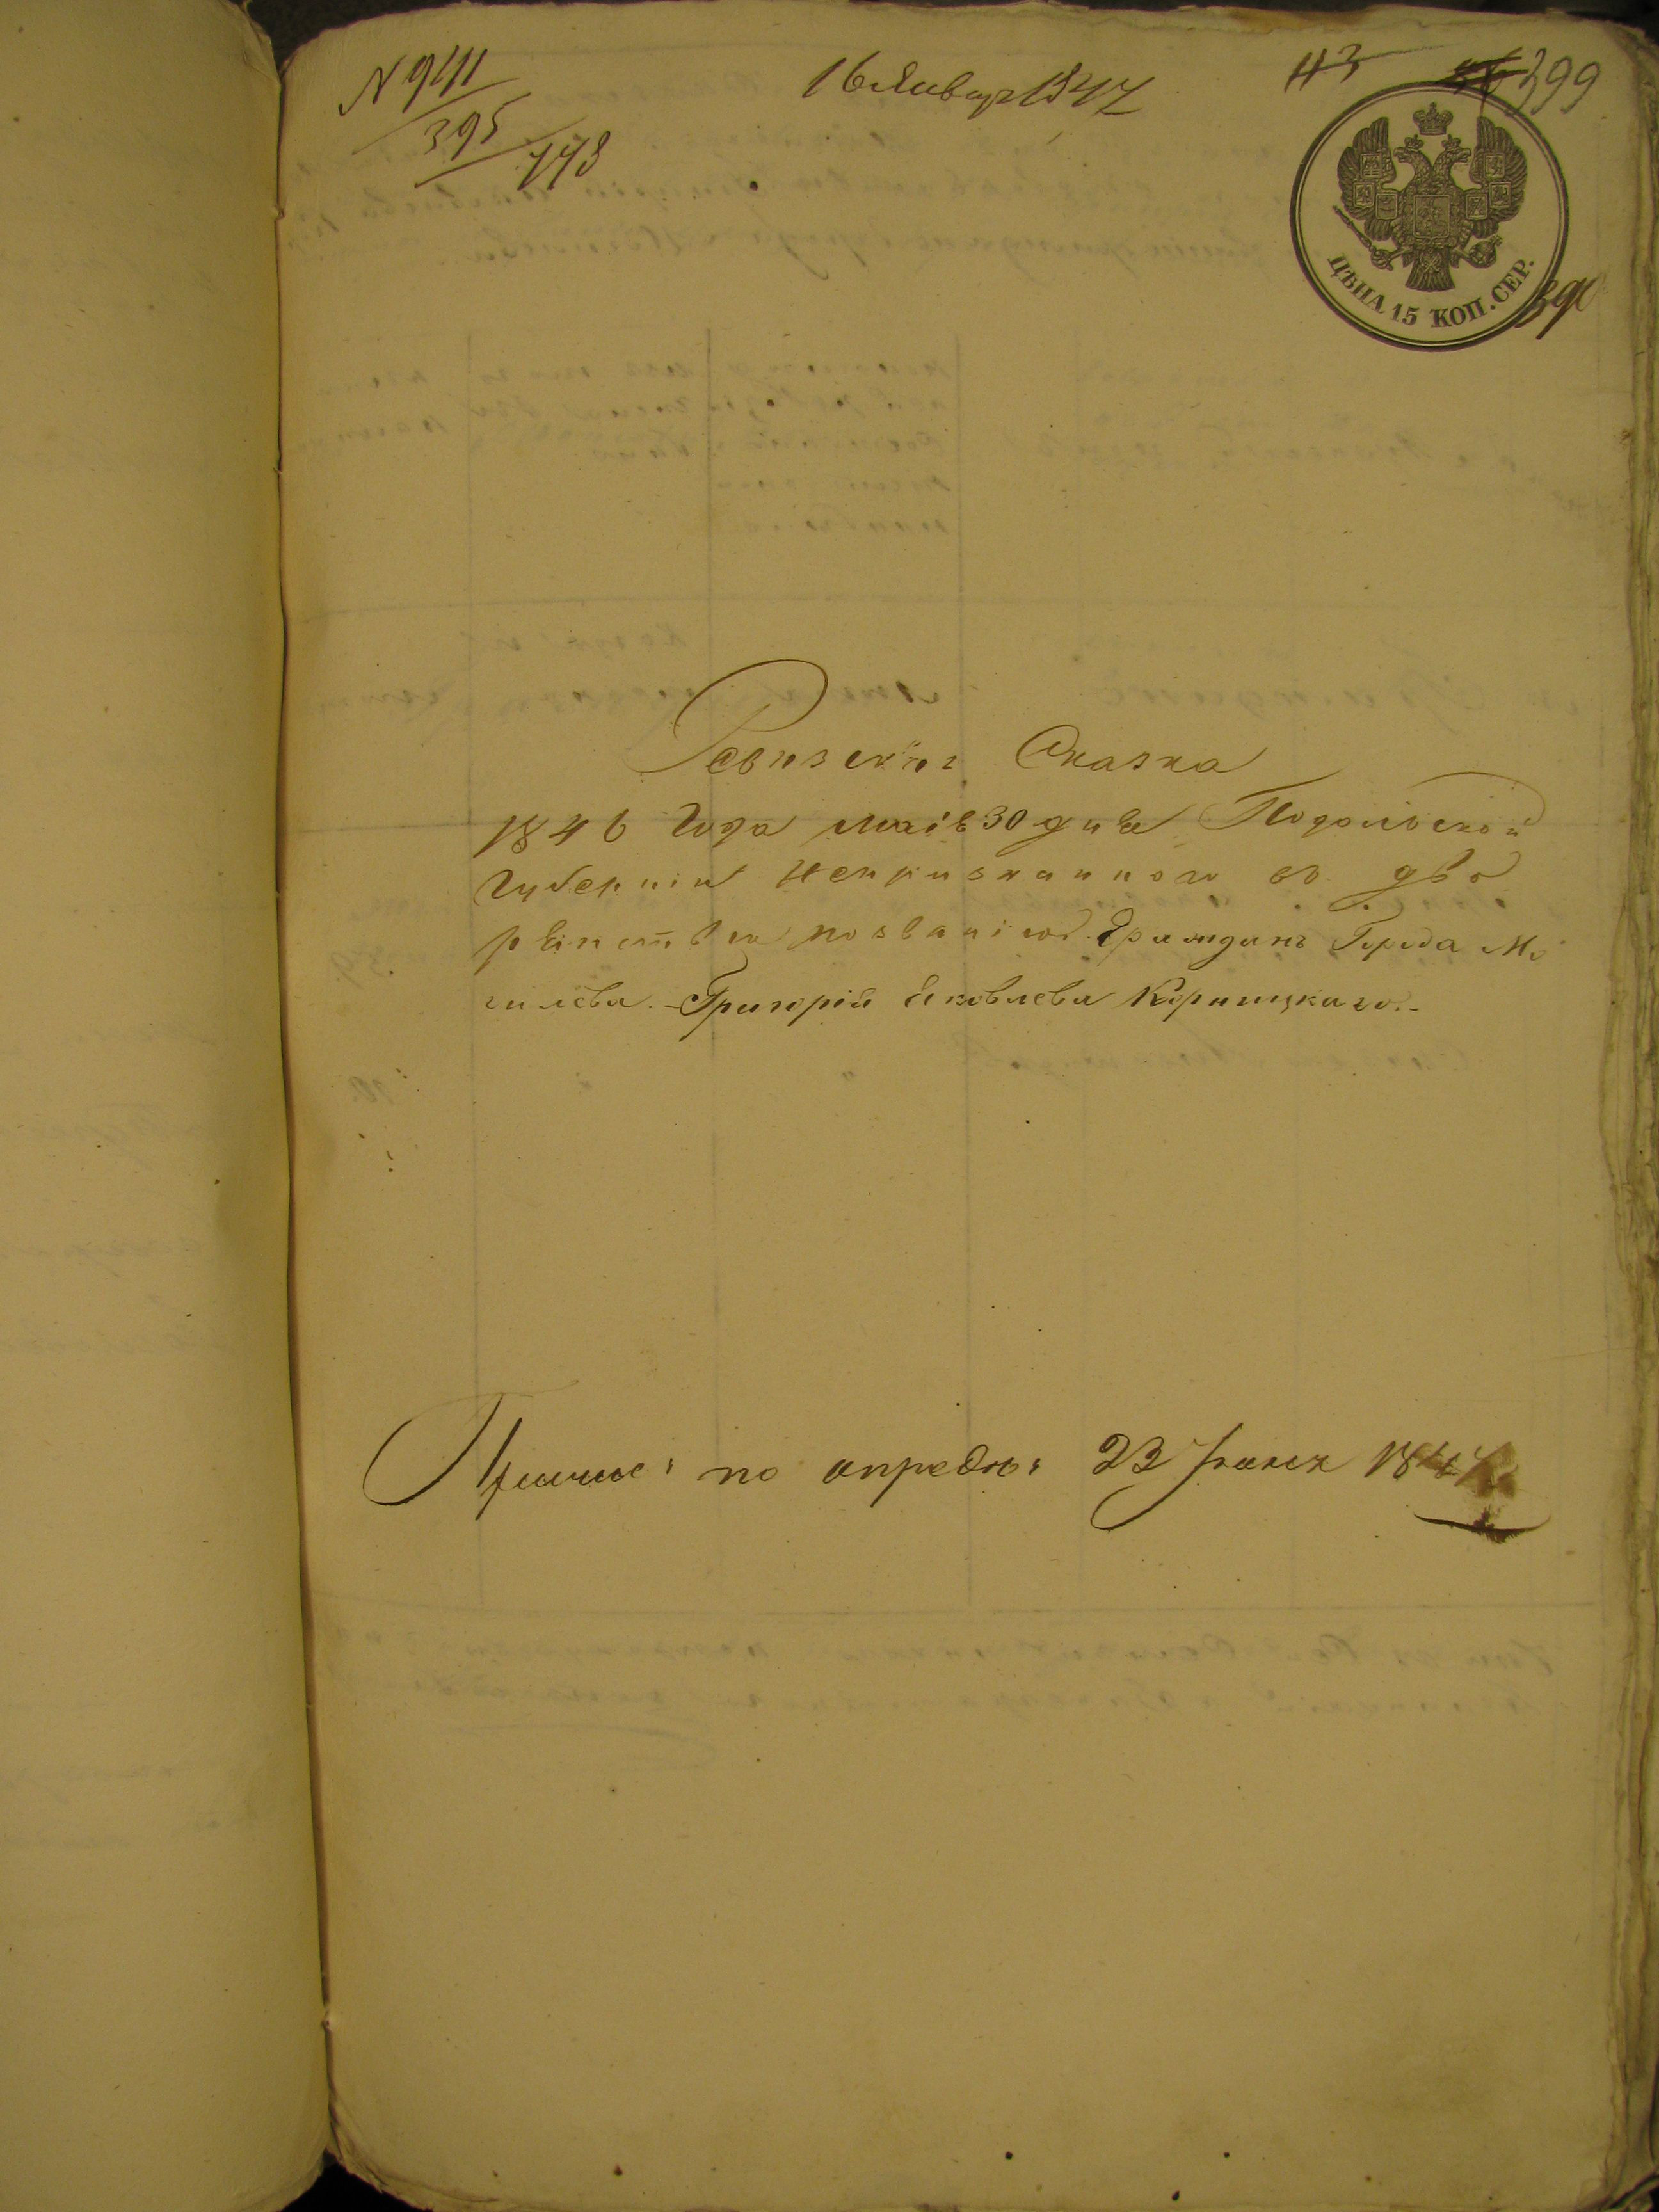 N 941
395
778
16 Января 1847
43
399
ЦѢНА 15 КОП. СЕР.
390
Ревизская Сказка
1846 Года маія 30 дня Подольской
Губерніи непризнанного въ дво
рянствѣ по званію Гражданъ Города Мо
гилева. Григорій Яковлева Корницкаго.
Причис: по опредѣл: 23 Генваря 184